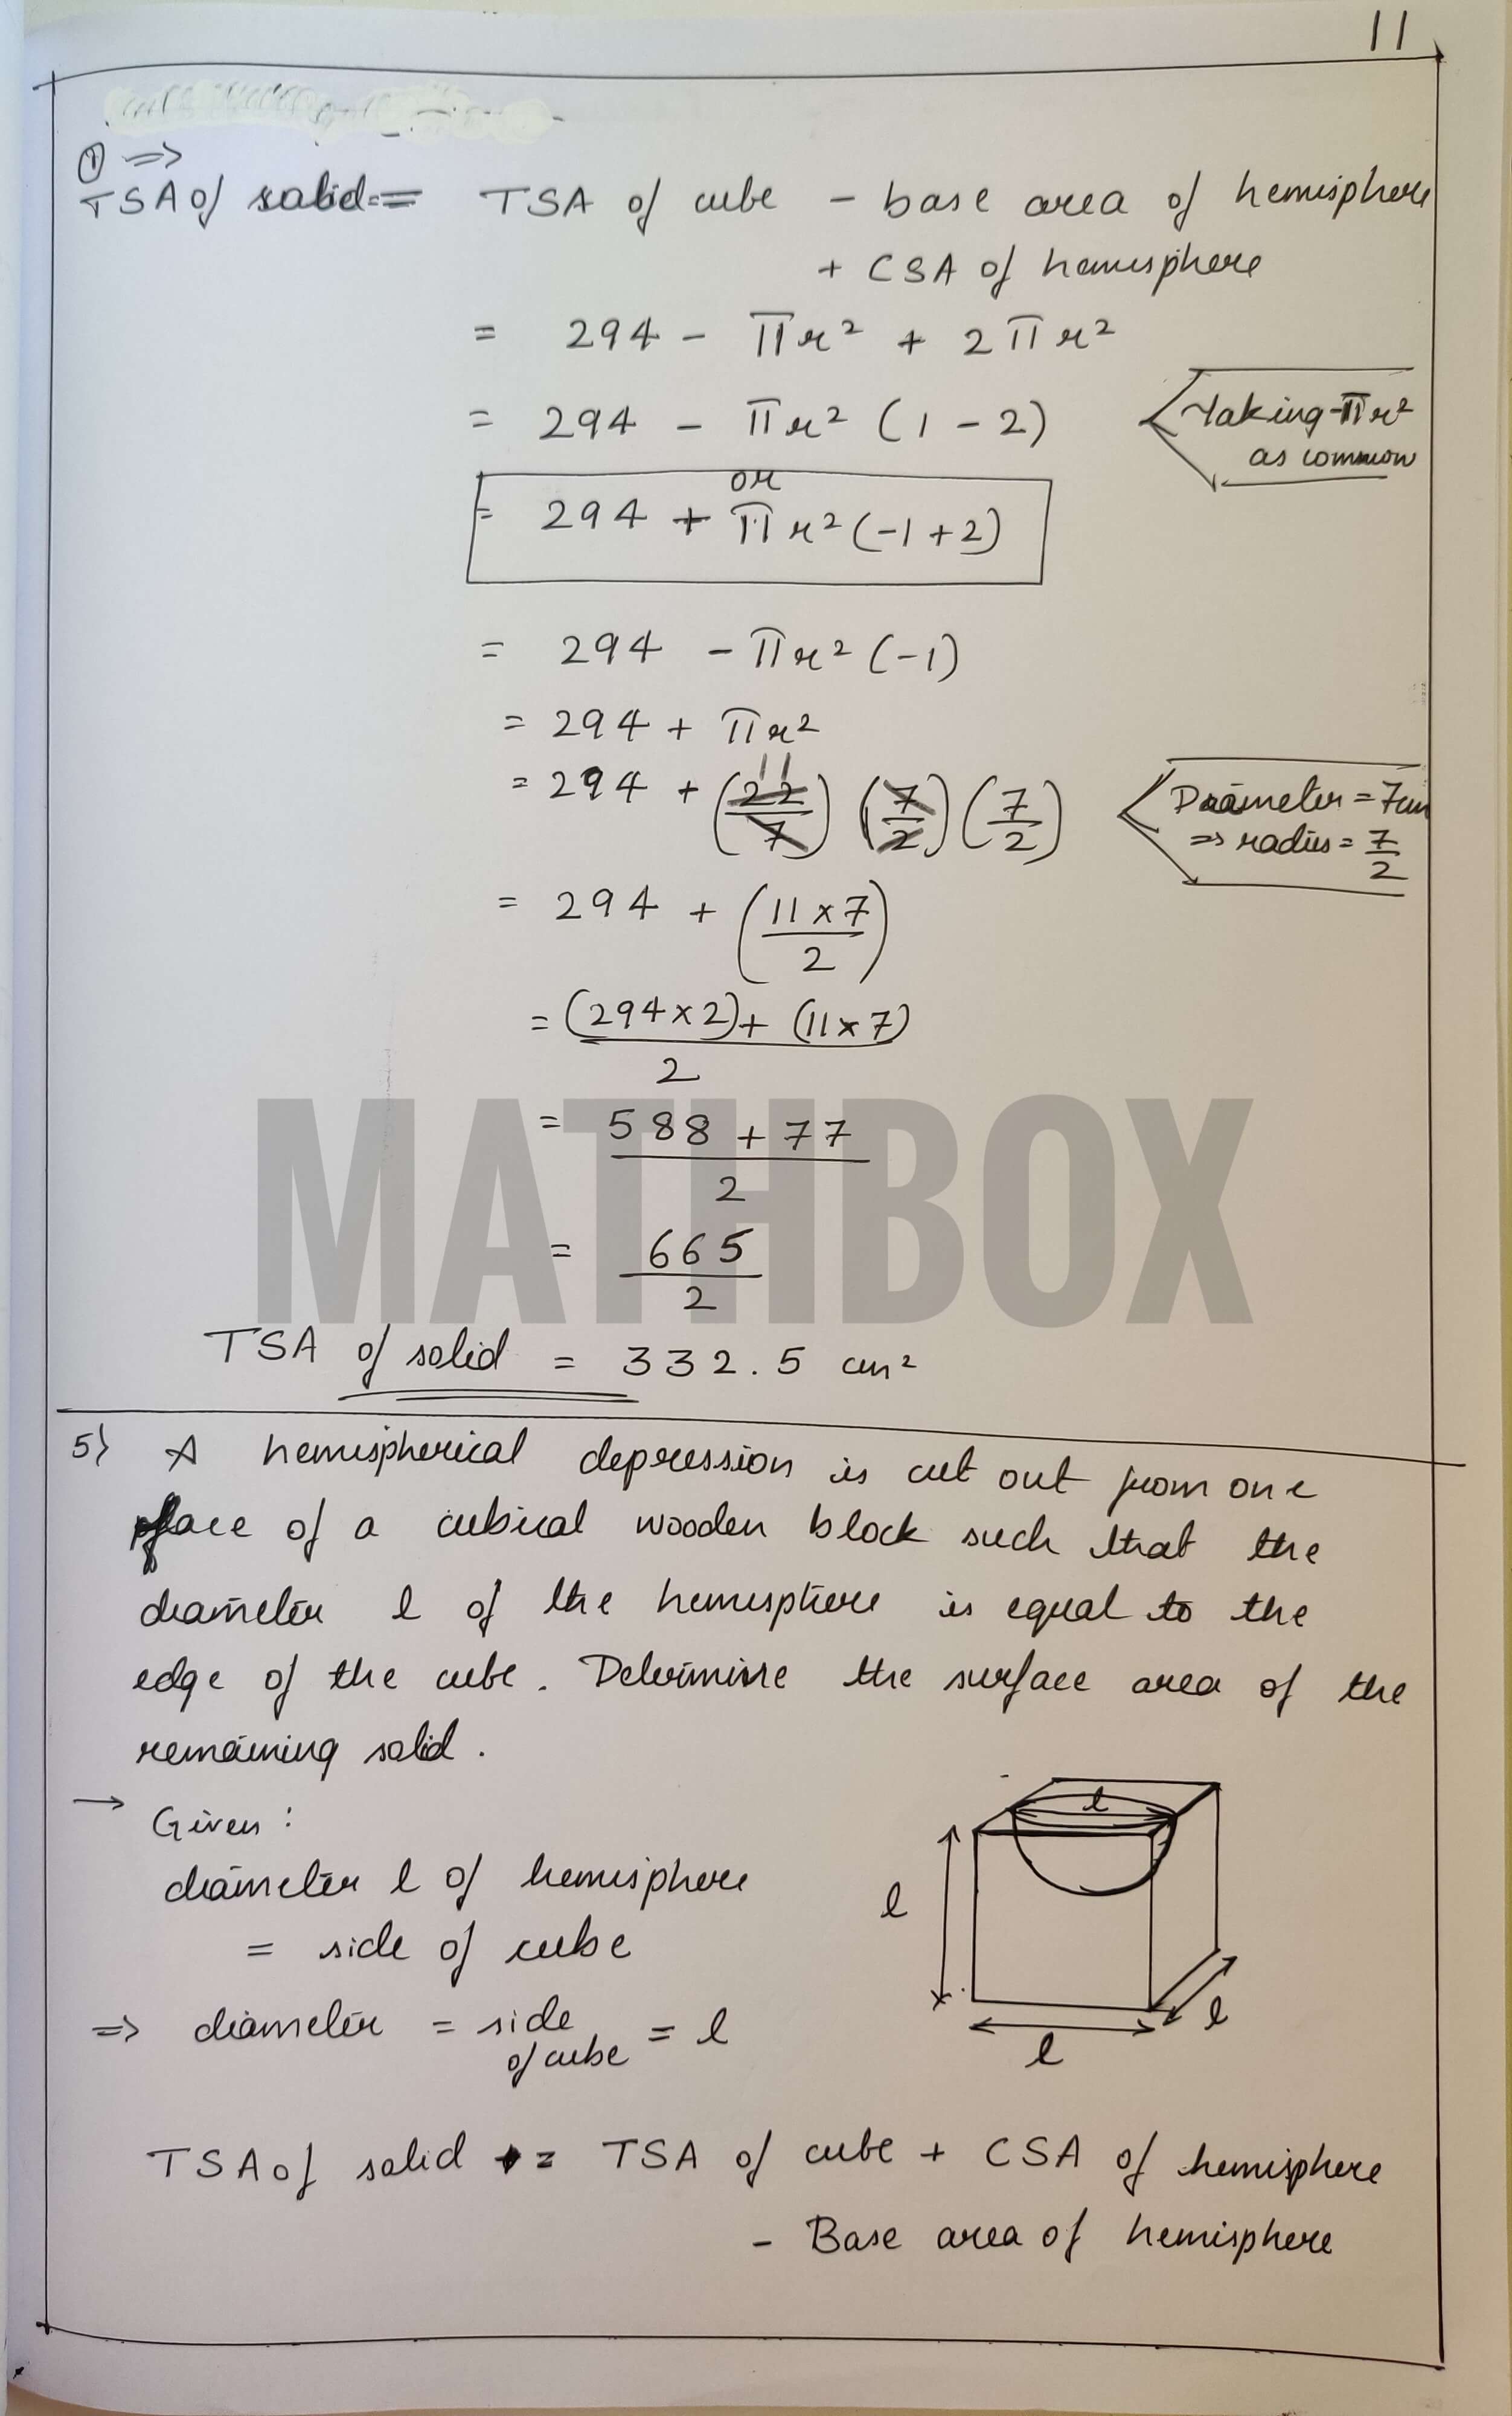 11
① ⇒
TSA of solid = TSA of cube - base area of hemisphere
+ CSA of hemisphere
= 294 - πr² + 2πr²
= 294 - πr² (1 - 2)
taking -πr²
as common
or
= 294 + πr² (-1 + 2)
= 294 - πr² (-1)
= 294 + πr²
11
= 294 + (22/7) (7/2) (7/2)
Diameter = 7cm
⇒ radius = 7/2
= 294 + (11 × 7 / 2)
= (294 × 2) + (11 × 7) / 2
= 588 + 77 / 2
= 665 / 2
MATHBOX
TSA of solid = 332.5 cm²
5) A hemispherical depression is cut out from one
face of a cubical wooden block such that the
diameter l of the hemisphere is equal to the
edge of the cube. Determine the surface area of the
remaining solid.
→ Given:
diameter l of hemisphere
= side of cube
⇒ diameter = side of cube = l
l
l
l
l
TSA of solid = TSA of cube + CSA of hemisphere
- Base area of hemisphere